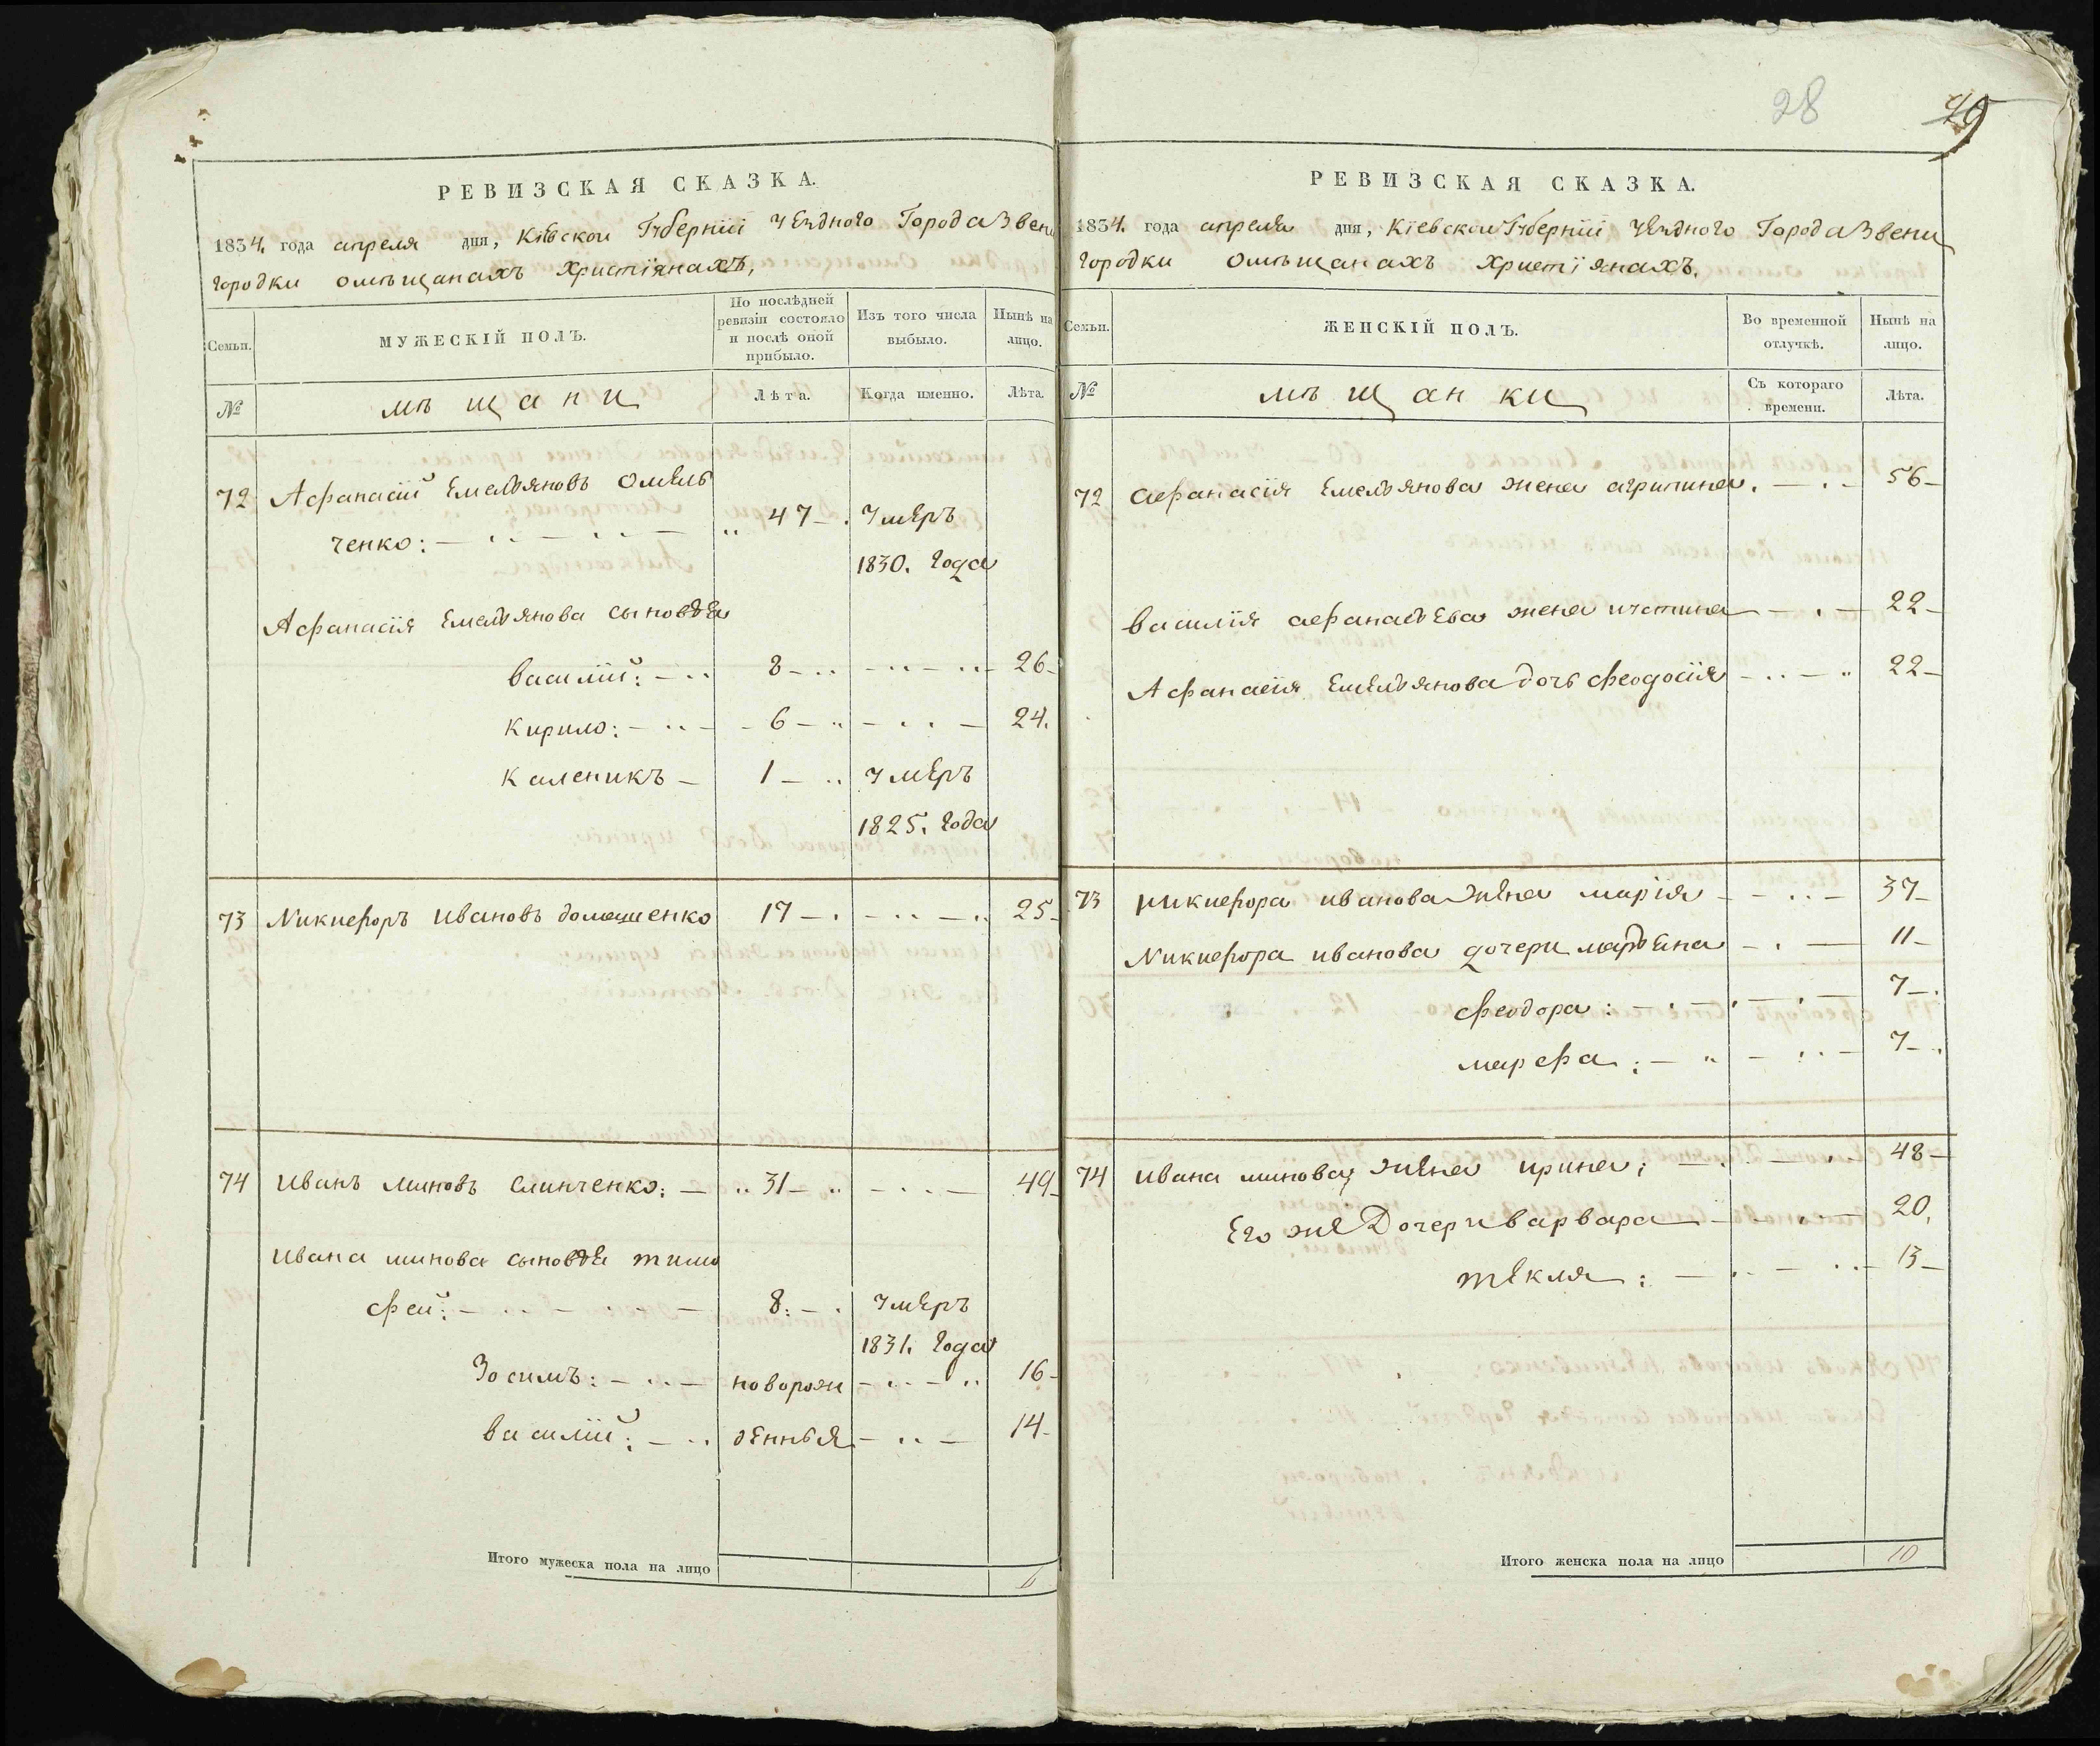 РЕВИЗСКАЯ СКАЗКА.
1834. года апреля дня, Кіевской Губерніи Уезднаго Города Звени
городки омѣщанахъ христіянахъ,
Семьи.
МУЖЕСКІЙ ПОЛЪ.
По послѣдней ревизіи состояло и послѣ оной прибыло.
Изъ того числа выбыло.
Нынѣ на лицо.
№
мѣщани
Лѣта.
Когда именно.
Лѣта.
72 Афанасій Емельяновъ Омель
ченко: 47 умеръ
1830. года
Афанасія Емельянова сыновья
василій: 8 26
кирило: 6 24.
каленикъ 1 умеръ
1825. года
73 Никифоръ ивановъ домашенко 17 25
74 иванъ миновъ слинченко: 31 49
ивана минова сыновья тимо
фей: 8: умеръ
1831. года
Зосимъ: новорож 16
василій: денныя 14
Итого мужеска пола на лицо 6
28
РЕВИЗСКАЯ СКАЗКА.
1834. года апреля дня, Кіевской Губерніи Уезднаго Города Звени
городки омѣщанахъ христіянахъ.
Семьи.
ЖЕНСКІЙ ПОЛЪ.
Во временной отлучкѣ.
Нынѣ на лицо.
№
мѣщанки
Съ котораго времени.
Лѣта.
72 афанасія Емельянова жена агрипина. 56
василія афанасьева жена иустина 22
Афанасія Емельянова дочь феодосія 22
73 никифора иванова жена марія 37
Никифора иванова дочери марьена 11
феодора: 7
марфа: 7
74 ивана минова жена ирина: 48
Его же Дочери варвара 20.
текля: 13
Итого женска пола на лицо 10